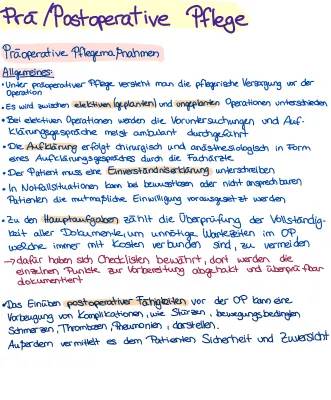 Prä/Postoperative Pflege
Präoperative Pflegemaßnahmen
Allgemeines:
• Unter präoperativer Pflege versteht man die pflegerische Versorgung vor der
Operation
• Es wird zwischen elektiven (geplanten) und ungeplanten Operationen unterschieden
• Bei elektiven Operationen werden die Voruntersuchungen und Auf-
klärungsgespräche meist ambulant durchgeführt
• Die Aufklärung erfolgt chirurgisch und anästhesiologisch in Form
eines Aufklärungsgespräches durch die Fachärzte
• Der Patient muss eine Einverständniserklärung unterschreiben
• In Notfallsituationen kann bei bewusstlosen oder nicht ansprechbaren
Patienten die mutmaßliche Einwilligung vorausgesetzt werden
• Zu den Hauptaufgaben zählt die Überprüfung der Vollständig-
keit aller Dokumente, um unnötige Wartezeiten im OP,
welche immer mit Kosten verbunden sind, zu vermeiden
→ dafür haben sich Checklisten bewährt, dort werden die
einzelnen Punkte zur Vorbereitung abgehakt und überprüfbar
dokumentiert
• Das Einüben postoperativer Fähigkeiten vor der OP kann eine
Vorbeugung von Komplikationen, wie Stürzen, bewegungsbedingten
Schmerzen, Thrombosen, Pneumonien, darstellen.
Außerdem vermittelt es dem Patienten Sicherheit und Zuversicht